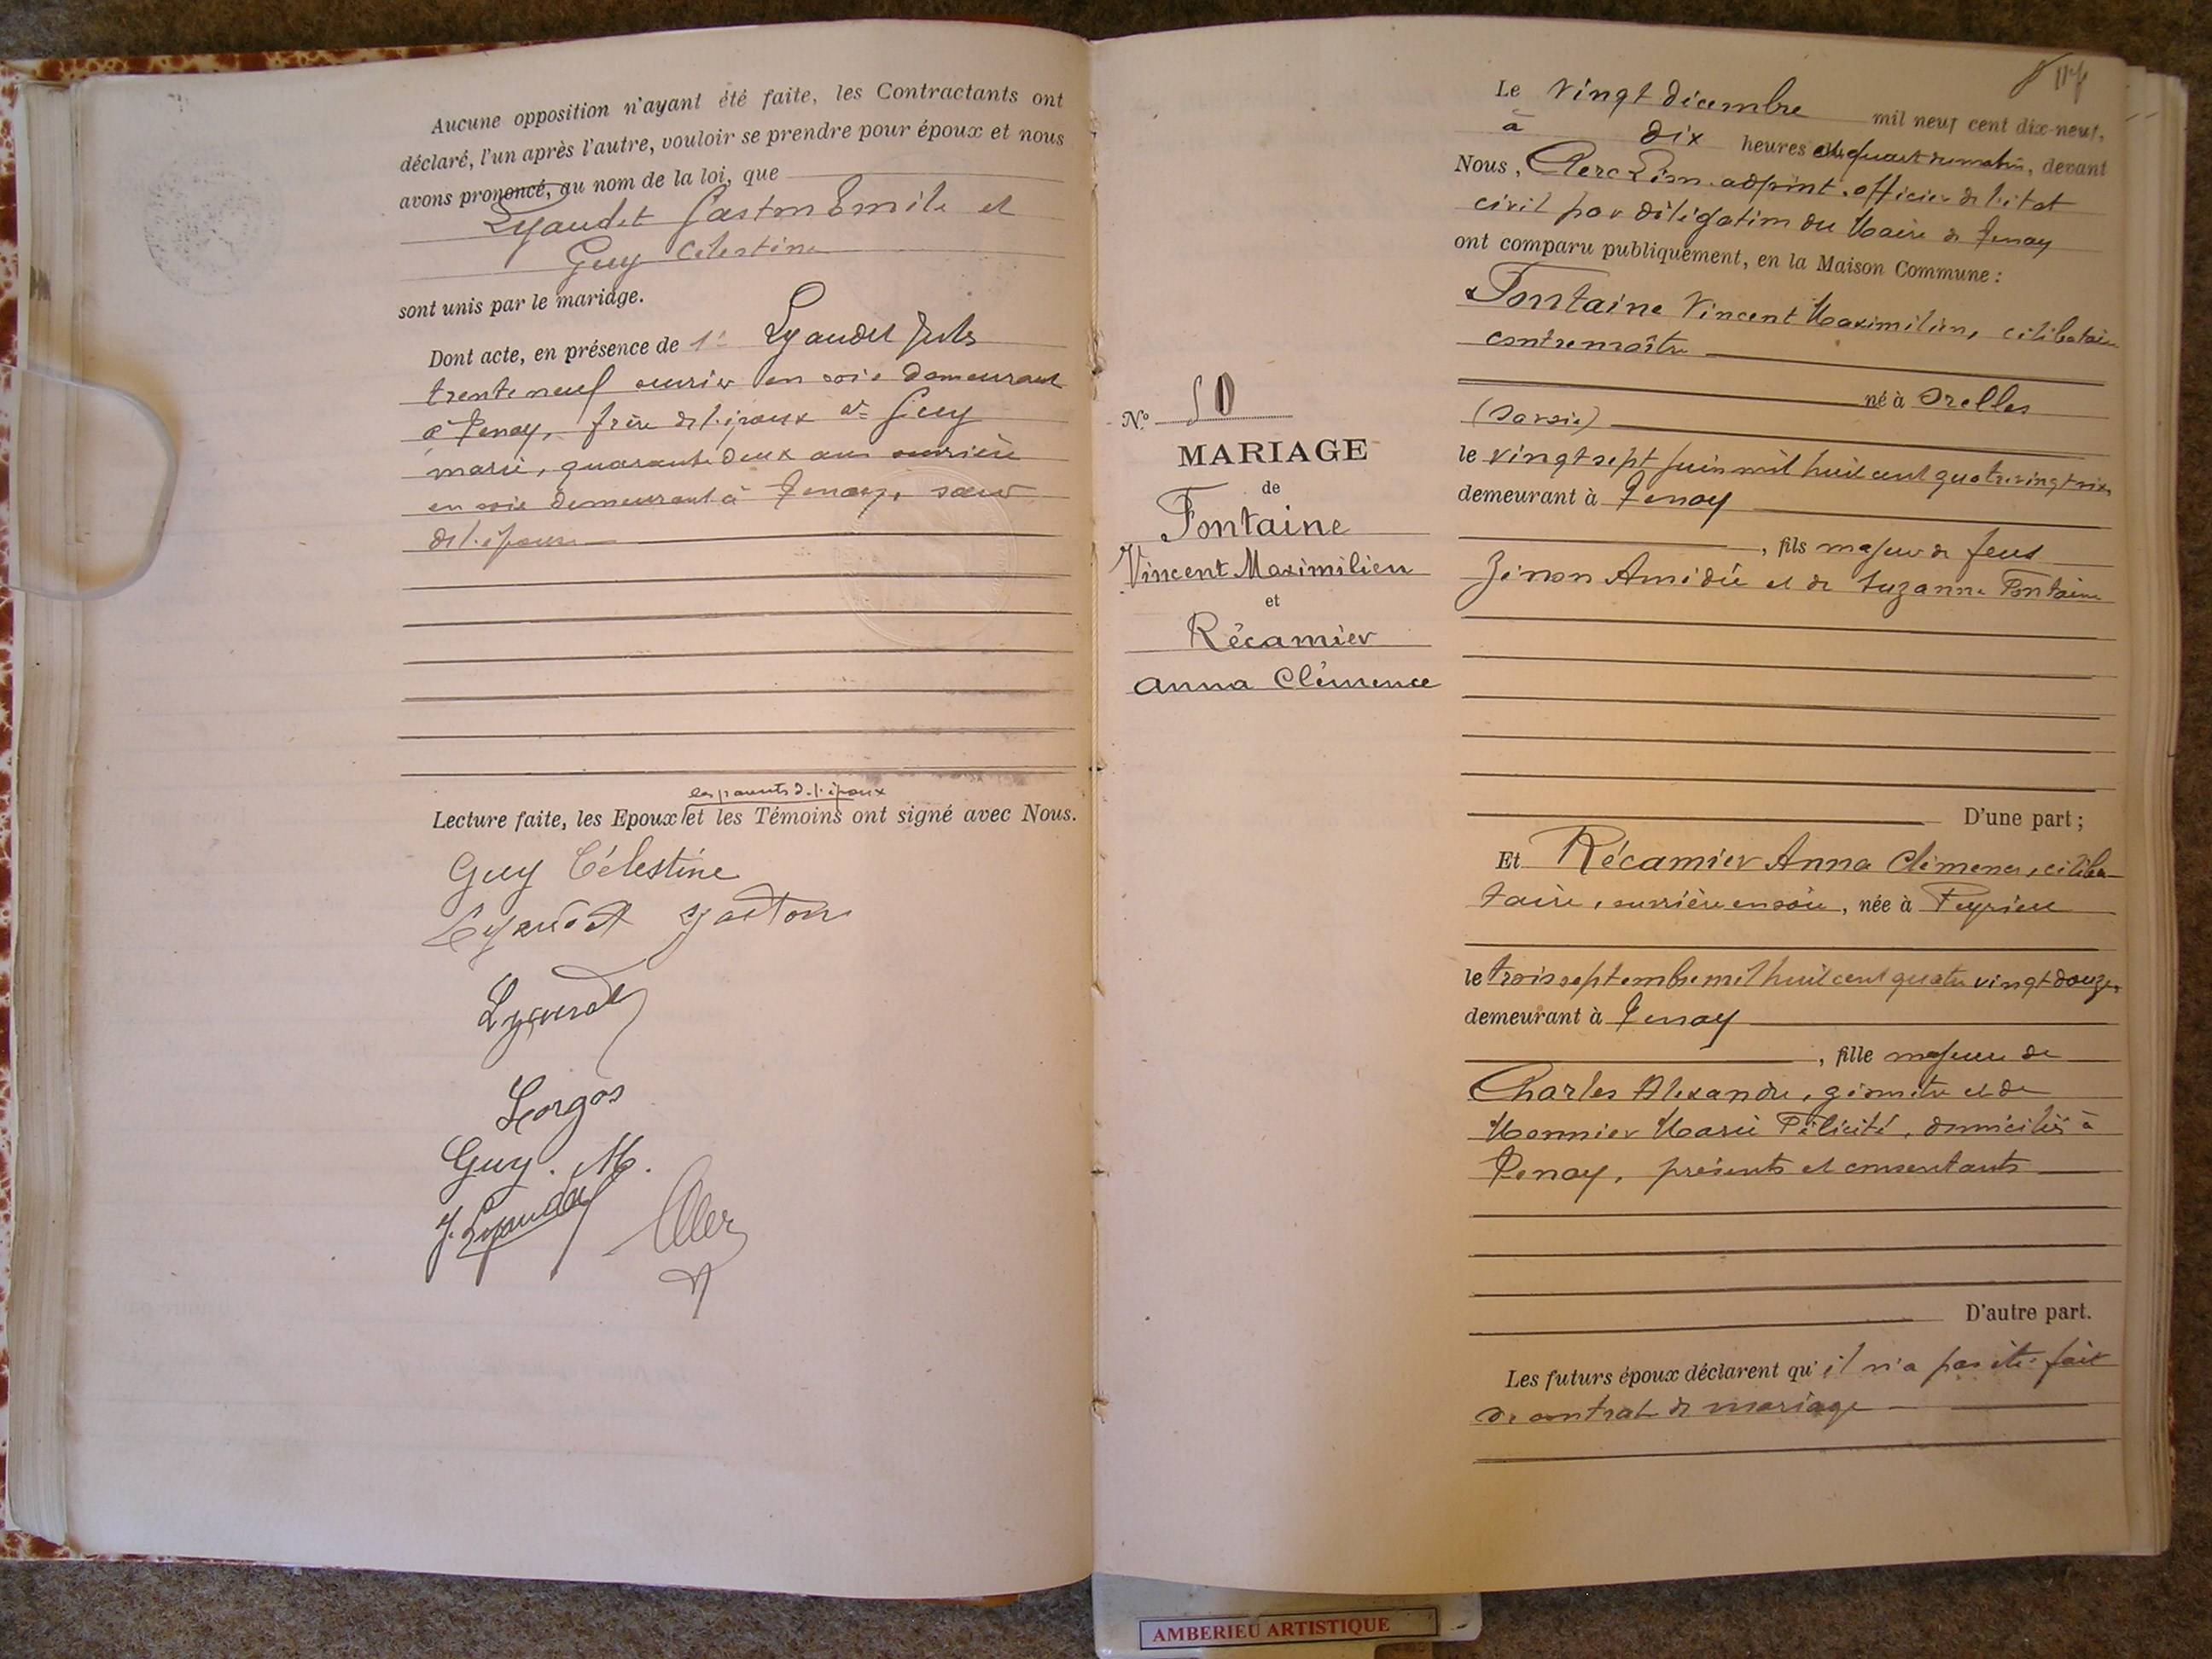 Aucune opposition n'ayant été faite, les Contractants ont
déclaré, l'un après l'autre, vouloir se prendre pour époux et nous
avons prononcé, au nom de la loi, que
Lyaudet Gaston Emile et
Guy Célestine
sont unis par le mariage.
Dont acte, en présence de 1° Lyaudet Jules
trente neuf ouvrier en soie demeurant
à Tenay, frère de l'époux 2° Guy
marie, quarante deux ans ouvrière
en soie demeurant à Tenay, sœur
de l'épouse
les parents de l'époux
Lecture faite, les Epoux et les Témoins ont signé avec Nous.
Guy Célestine
Lyaudet gaston
Lyaudet
Lorgos
Guy. M.
J. Lyaudet
117
Le vingt décembre mil neuf cent dix-neuf,
à dix heures quart du matin, devant
Nous, Clerc adjoint officier de l'état
civil par délégation du Maire de Tenay
ont comparu publiquement, en la Maison Commune :
Fontaine Vincent Maximilien, célibataire
contremaître
né à Orelles
(Savoie)
le vingt sept juin mil huit cent quatre vingt
demeurant à Tenay
, fils majeur de feus
Zénon Amédée et de Suzanne Fontaine
D'une part ;
Et Récamier Anna Clémence, céliba-
taire, ouvrière en soie, née à Peyrieu
le trois septembre mil huit cent quatre vingt douze
demeurant à Tenay
, fille majeure de
Charles Alexandre, géomètre et de
Monnier Marie Félicité, domiciliés à
Tenay, présents et consentants
D'autre part.
Les futurs époux déclarent qu'il n'a pas été fait
de contrat de mariage
N° 50
MARIAGE
de
Fontaine
Vincent Maximilien
et
Récamier
Anna Clémence
AMBERIEU ARTISTIQUE